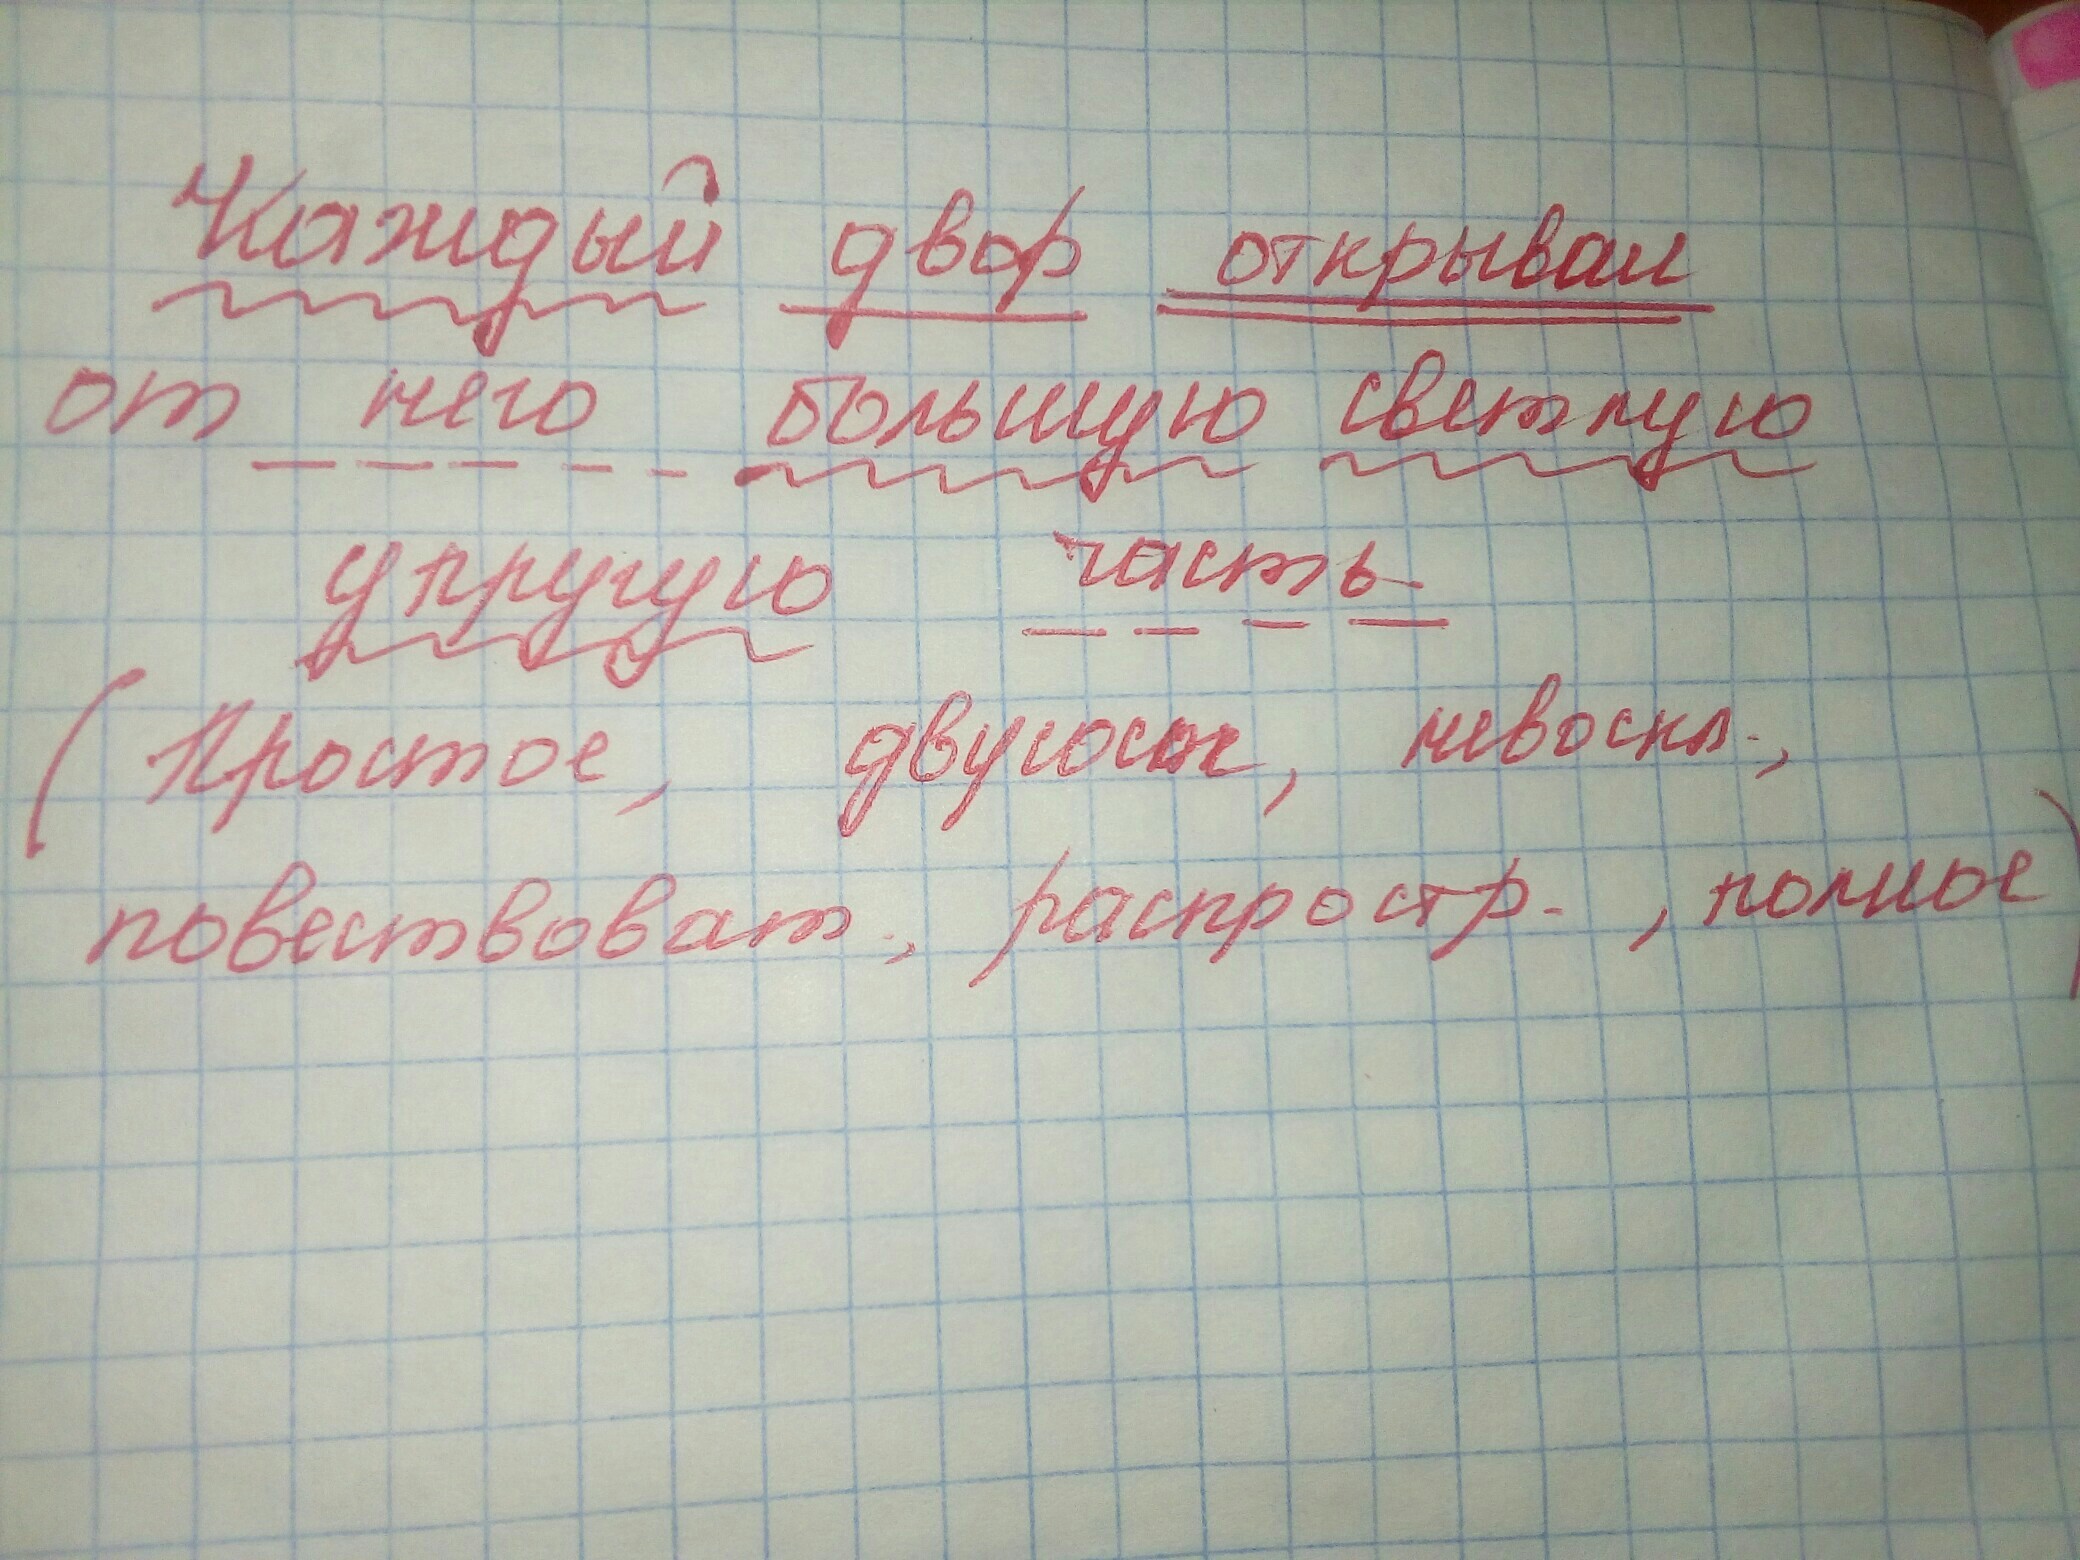 Каждый двор открывал
от него большую светлую
упругую часть
(Простое, двусост, невоскл.,
повествоват., распростр., полное)